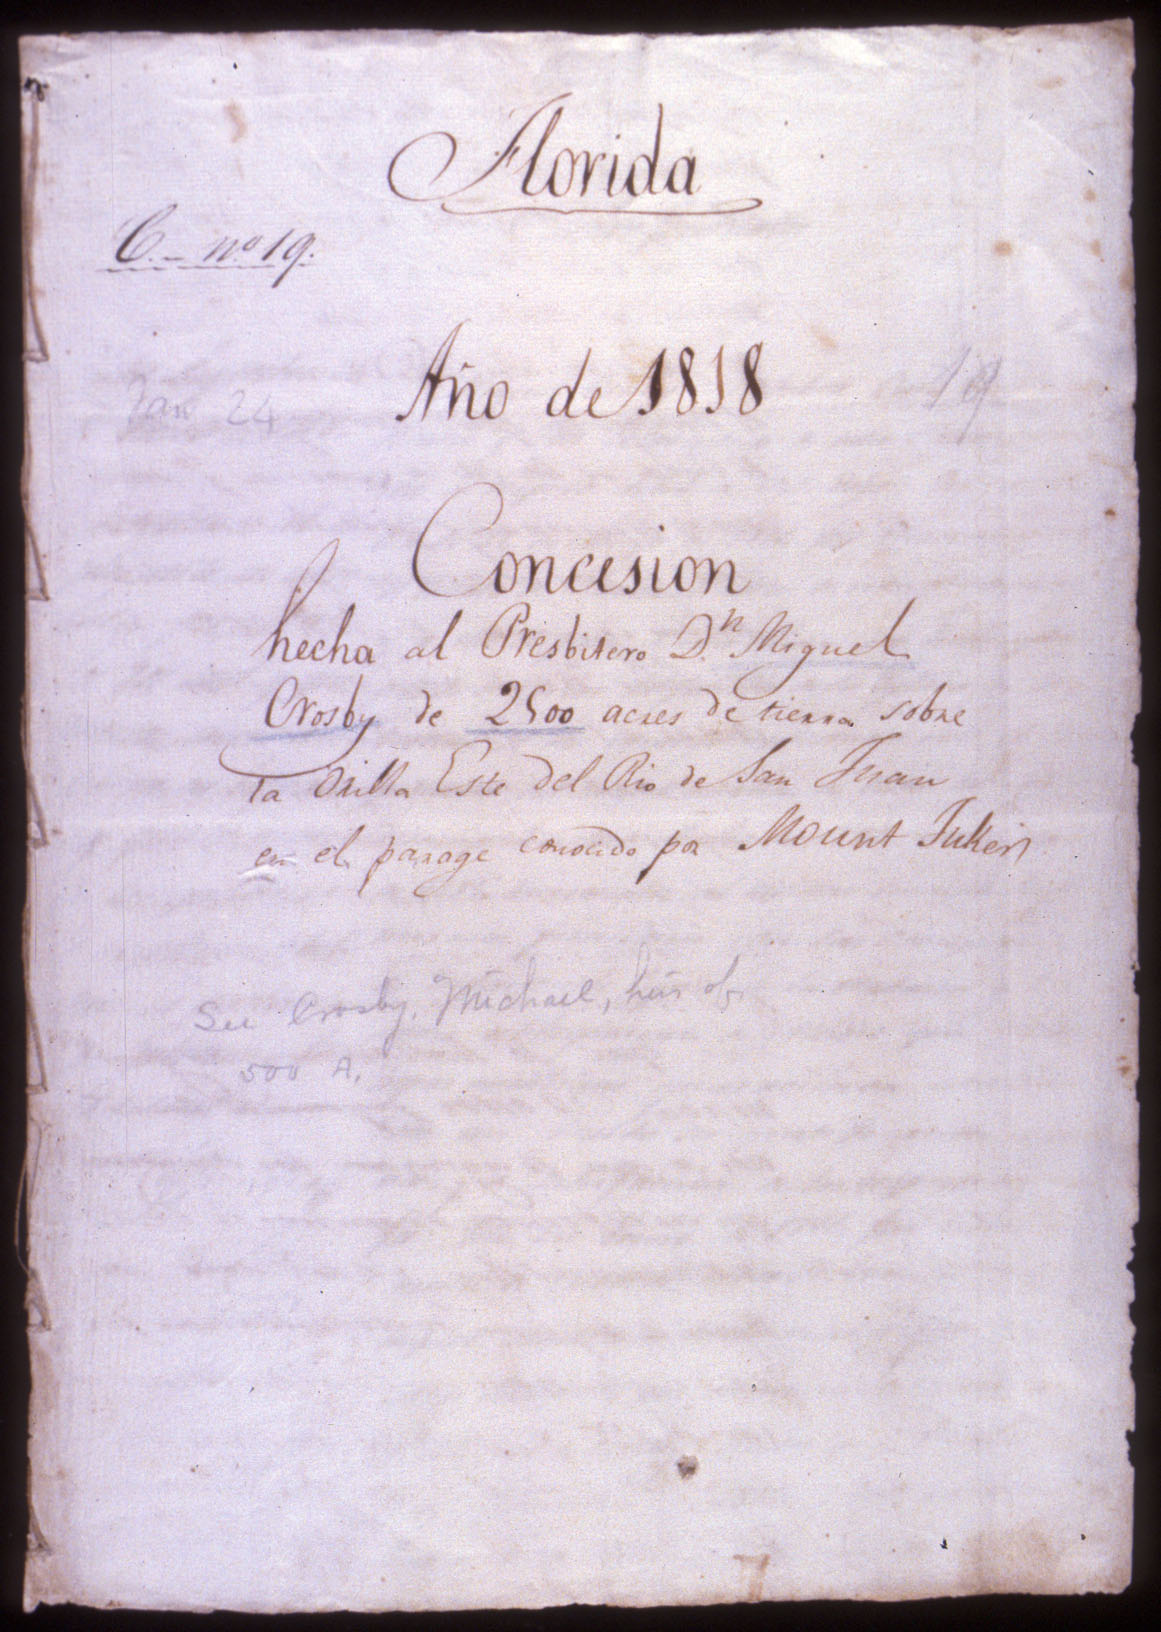 Florida
C. nº 19.
Año de 1818
Jan 24
19
Concesion
hecha al Presbitero Dn. Miguel
Crosby de 2500 acres de tierra sobre
la orilla Este del Rio de San Juan
en el parage conocido por Mount
See Crosby, Michael, heirs of.
500 A.